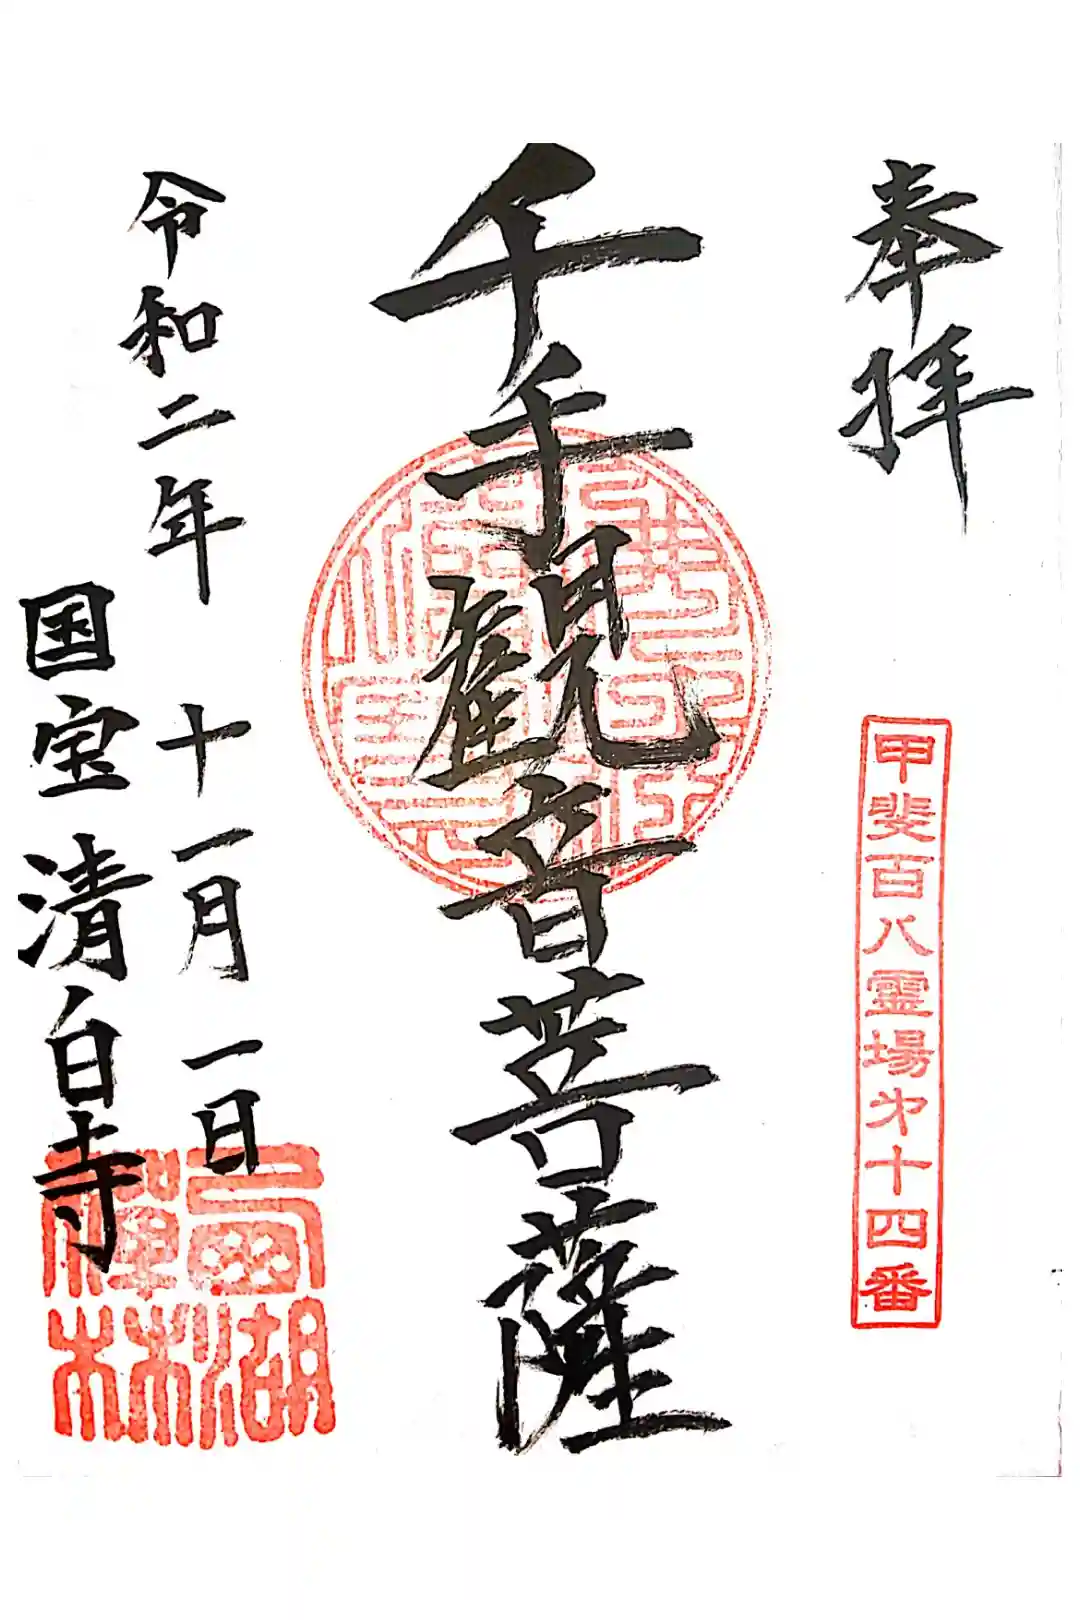 奉拝
甲斐百八霊場第十四番
千手観音菩薩
令和二年 十一月一日
国宝 清白寺
西湖禅林